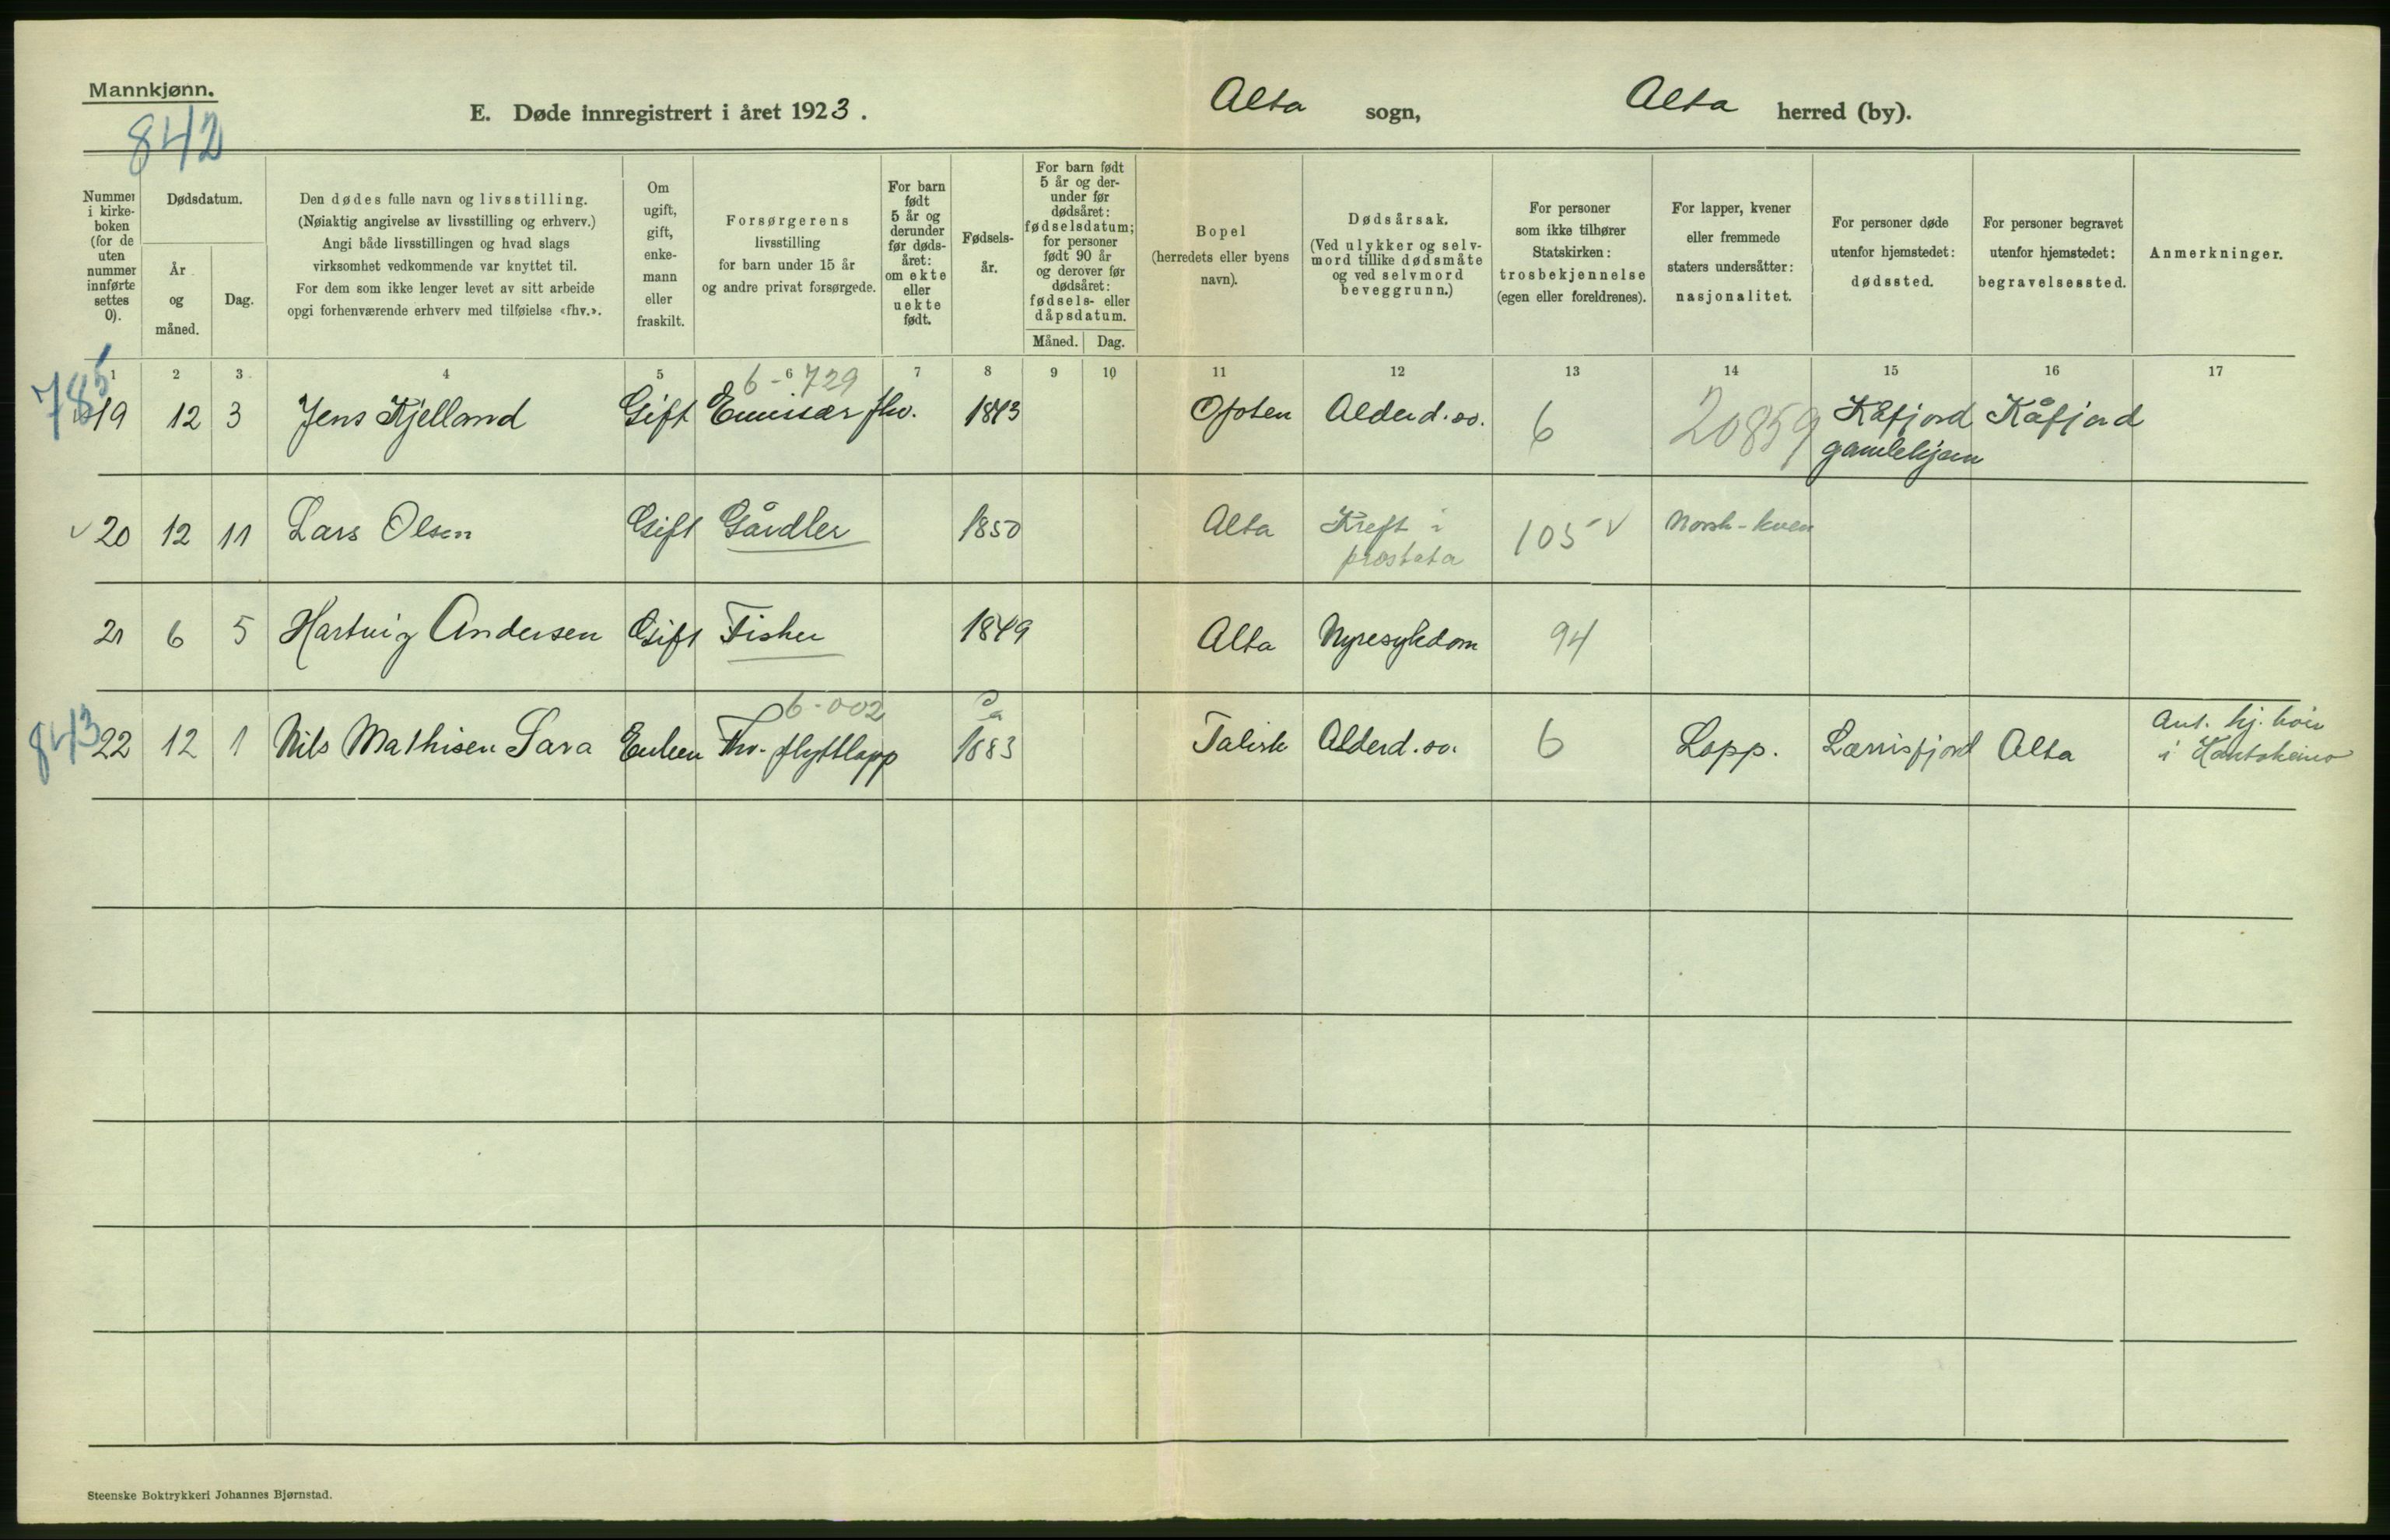 Mannkjønn.
842
E. Døde innregistrert i året 1923.
Alta sogn,
Alta herred (by).
Nummer
i kirke-
boken
(for de
uten
nummer
innførte
settes
0).
Dødsdatum.
År
og
måned.
Dag.
Den dødes fulle navn og livsstilling.
(Nøiaktig angivelse av livsstilling og erhverv.)
Angi både livsstillingen og hvad slags
virksomhet vedkommende var knyttet til.
For dem som ikke lenger levet av sitt arbeide
opgi forhenværende erhverv med tilføielse «fhv.».
Om
ugift,
gift,
enke-
mann
eller
fraskilt.
Forsørgerens
livsstilling
for barn under 15 år
og andre privat forsørgede.
For barn
født
5 år og
derunder
før døds-
året:
om ekte
eller
uekte
født.
Fødsels-
år.
For barn født
5 år og der-
under før
dødsåret:
fødselsdatum;
for personer
født 90 år
og derover før
dødsåret:
fødsels- eller
dåpsdatum.
Måned.
Dag.
Bopel
(herredets eller byens
navn).
Dødsårsak.
(Ved ulykker og selv-
mord tillike dødsmåte
og ved selvmord
beveggrunn.)
For personer
som ikke tilhører
Statskirken:
trosbekjennelse
(egen eller foreldrenes).
For lapper, kvener
eller fremmede
staters undersåtter:
nasjonalitet.
For personer døde
utenfor hjemstedet:
dødssted.
For personer begravet
utenfor hjemstedet:
begravelsessted.
Anmerkninger.
1 2 3 4 5 6 7 8 9 10 11 12 13 14 15 16 17
785
6-729
19 12 3 Jens Kjelland Gift Emissær fhv. 1843 Ofoten Alderd.sv. 6 20859 Kåfjord Kåfjord
gamlehjem
20 12 11 Lars Olsen Gift Gårdbr 1850 Alta Kreft i 105 Norsk-kven
prostata
21 6 5 Hartvig Andersen Gift Fisker 1849 Alta Nyresykdom 94
843
6-002
22 12 1 Nils Mathisen Sara Enkem Fhv. flyttlapp 1883 Talvik Alderd.sv. 6 Lapp. Lærrisfjord Alta
Ant. hj. hør
i Kautokeino
Steenske Boktrykkeri Johannes Bjørnstad.